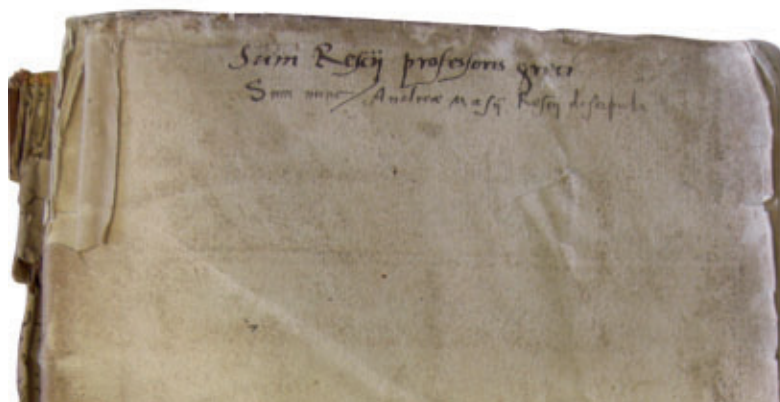 Sum Rescij professoris greci
Sum nunc Andreæ Masij Rescij discipuli